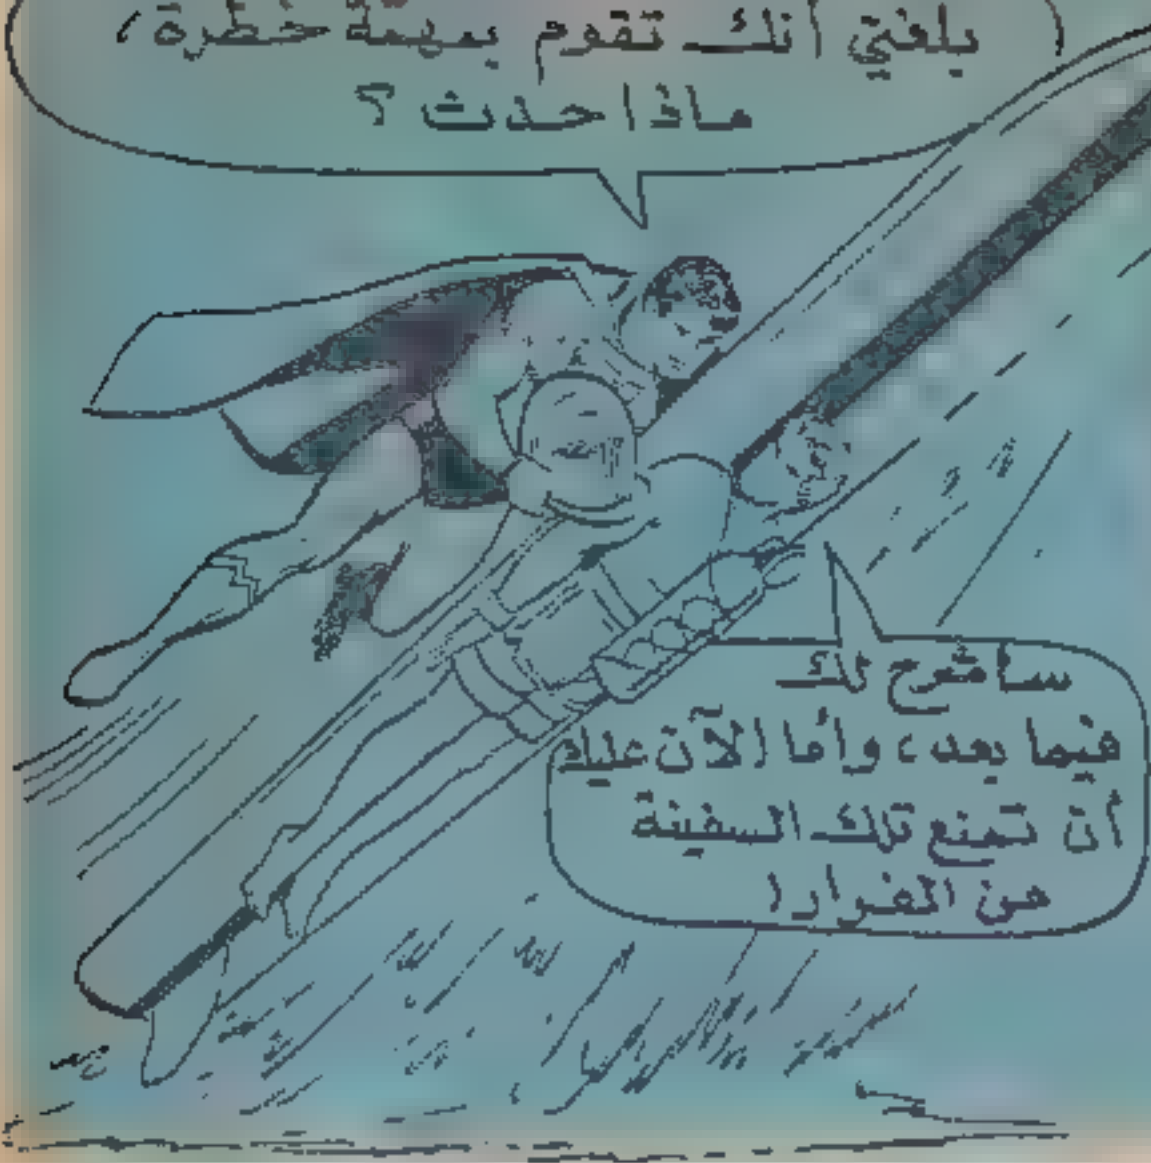 بلغني أنك تقوم بمهمّة خطرة،
ماذا حدث ؟
سأشرح لك
فيما بعد، وأما الآن عليك
أن تمنع تلك السفينة
من الفرار!